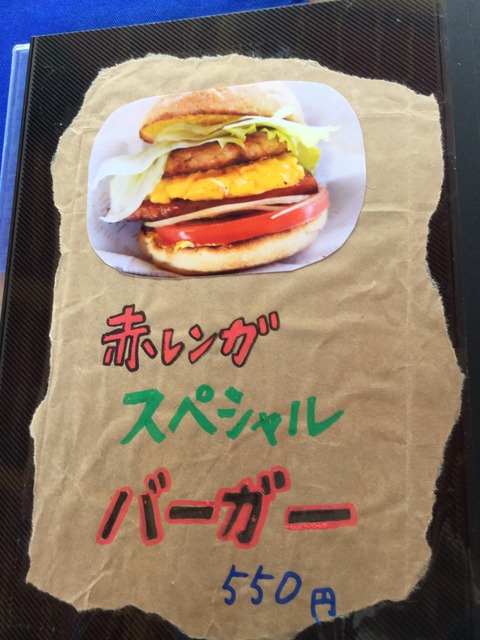 赤レンガ
スペシャル
バーガー
550円